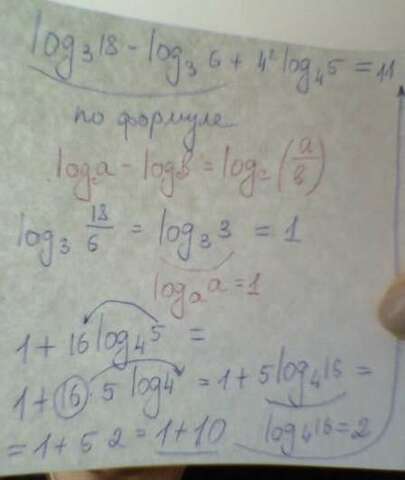 log₃18 - log₃6 + 4² log₄5 = 11
по формуле
log₂a - log₂в = log₂(a/в)
log₃ 18/6 = log₃3 = 1
logₐa = 1
1 + 16 log₄5 =
1 + 16 · 5 log4 = 1 + 5 log₄16 =
= 1 + 5 2 = 1 + 10 log₄16 = 2